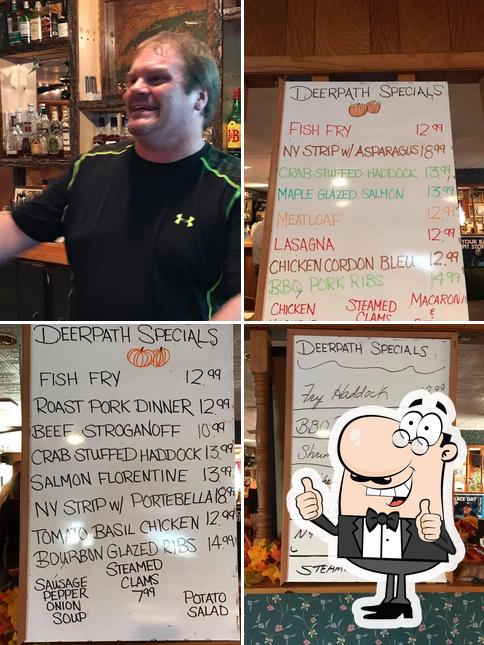 DEERPATH SPECIALS
FISH FRY 12.99
NY STRIP W/ ASPARAGUS 18.99
CRAB STUFFED HADDOCK 13.99
MAPLE GLAZED SALMON 13.99
MEATLOAF 12.99
LASAGNA 12.99
CHICKEN CORDON BLEU 12.99
BBQ PORK RIBS 14.99
CHICKEN STEAMED MACARONI
CLAMS &
DEERPATH SPECIALS
FISH FRY 12.99
ROAST PORK DINNER 12.99
BEEF STROGANOFF 10.99
CRAB STUFFED HADDOCK 13.99
SALMON FLORENTINE 13.99
NY STRIP W/ PORTEBELLA 18.99
TOMATO BASIL CHICKEN 12.99
BOURBON GLAZED RIBS 14.99
SAUSAGE
PEPPER
ONION
SOUP
STEAMED
CLAMS
7.99
POTATO
SALAD
DEERPATH SPECIALS
Fry Haddock
BBQ